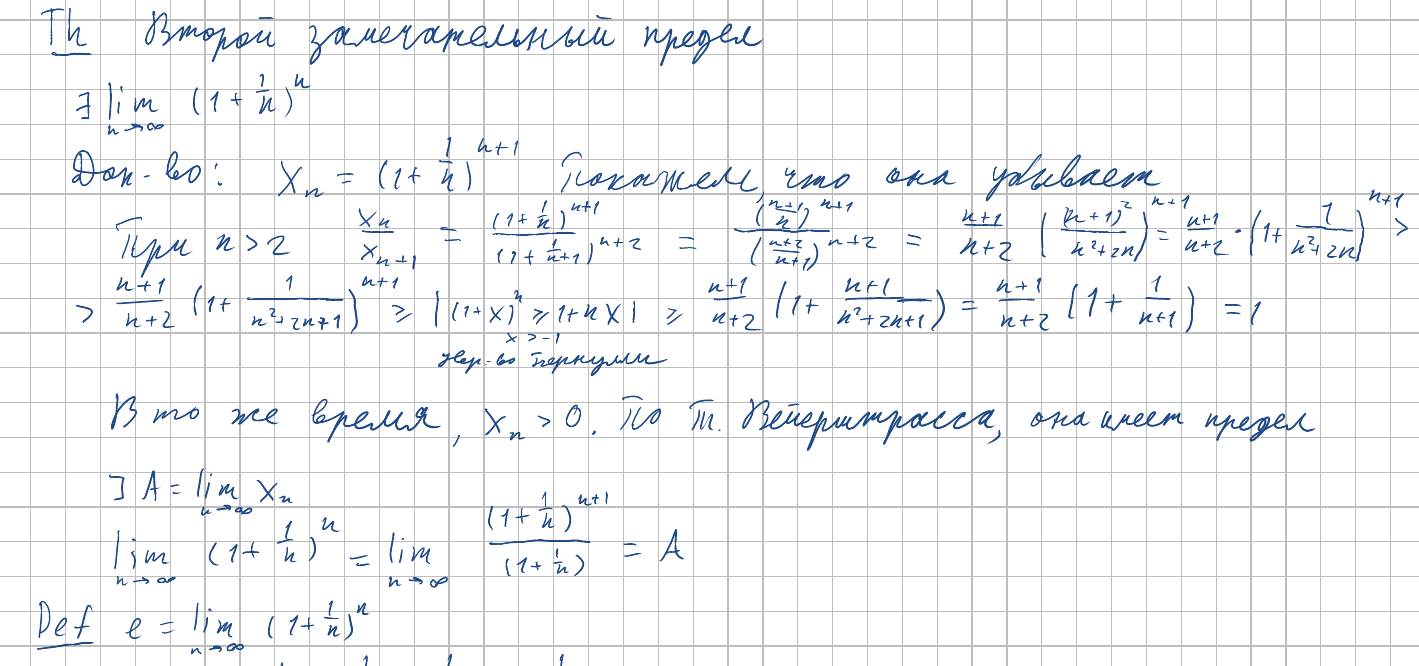 Th Второй замечательный предел
∃ lim n→∞ (1 + 1/n)^n
Док-во: x_n = (1 + 1/n)^(n+1) Покажем, что она убывает
При n > 2 x_n/x_(n+1) = (1 + 1/n)^(n+1) / (1 + 1/(n+1))^(n+2) = ((n+1)/n)^(n+1) / ((n+2)/(n+1))^(n+2) = (n+1)/(n+2) ((n+1)^2/(n^2+2n))^(n+1) = (n+1)/(n+2) · (1 + 1/(n^2+2n))^(n+1) >
> (n+1)/(n+2) (1 + 1/(n^2+2n+1))^(n+1) ≥ |(1+x)^n ≥ 1+nx| ≥ (n+1)/(n+2) (1 + (n+1)/(n^2+2n+1)) = (n+1)/(n+2) (1 + 1/(n+1)) = 1
x > -1
нер-во Бернулли
В то же время, x_n > 0. По т. Вейерштрасса, она имеет предел
∃ A = lim n→∞ x_n
lim n→∞ (1 + 1/n)^n = lim n→∞ (1 + 1/n)^(n+1) / (1 + 1/n) = A
Def e = lim n→∞ (1 + 1/n)^n